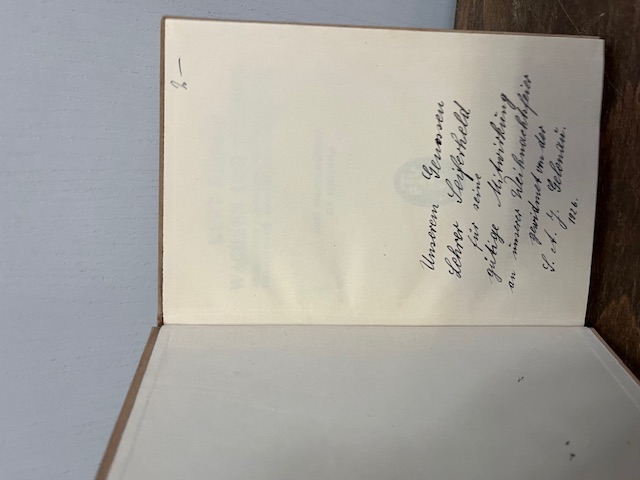 2.—
Unserem Genossen
Lehrer Seiferheld
für seine
gütige Mitwirkung
an unserer Weihnachtsfeier
gewidmet von der
S. A. J. Gelenau.
1926.